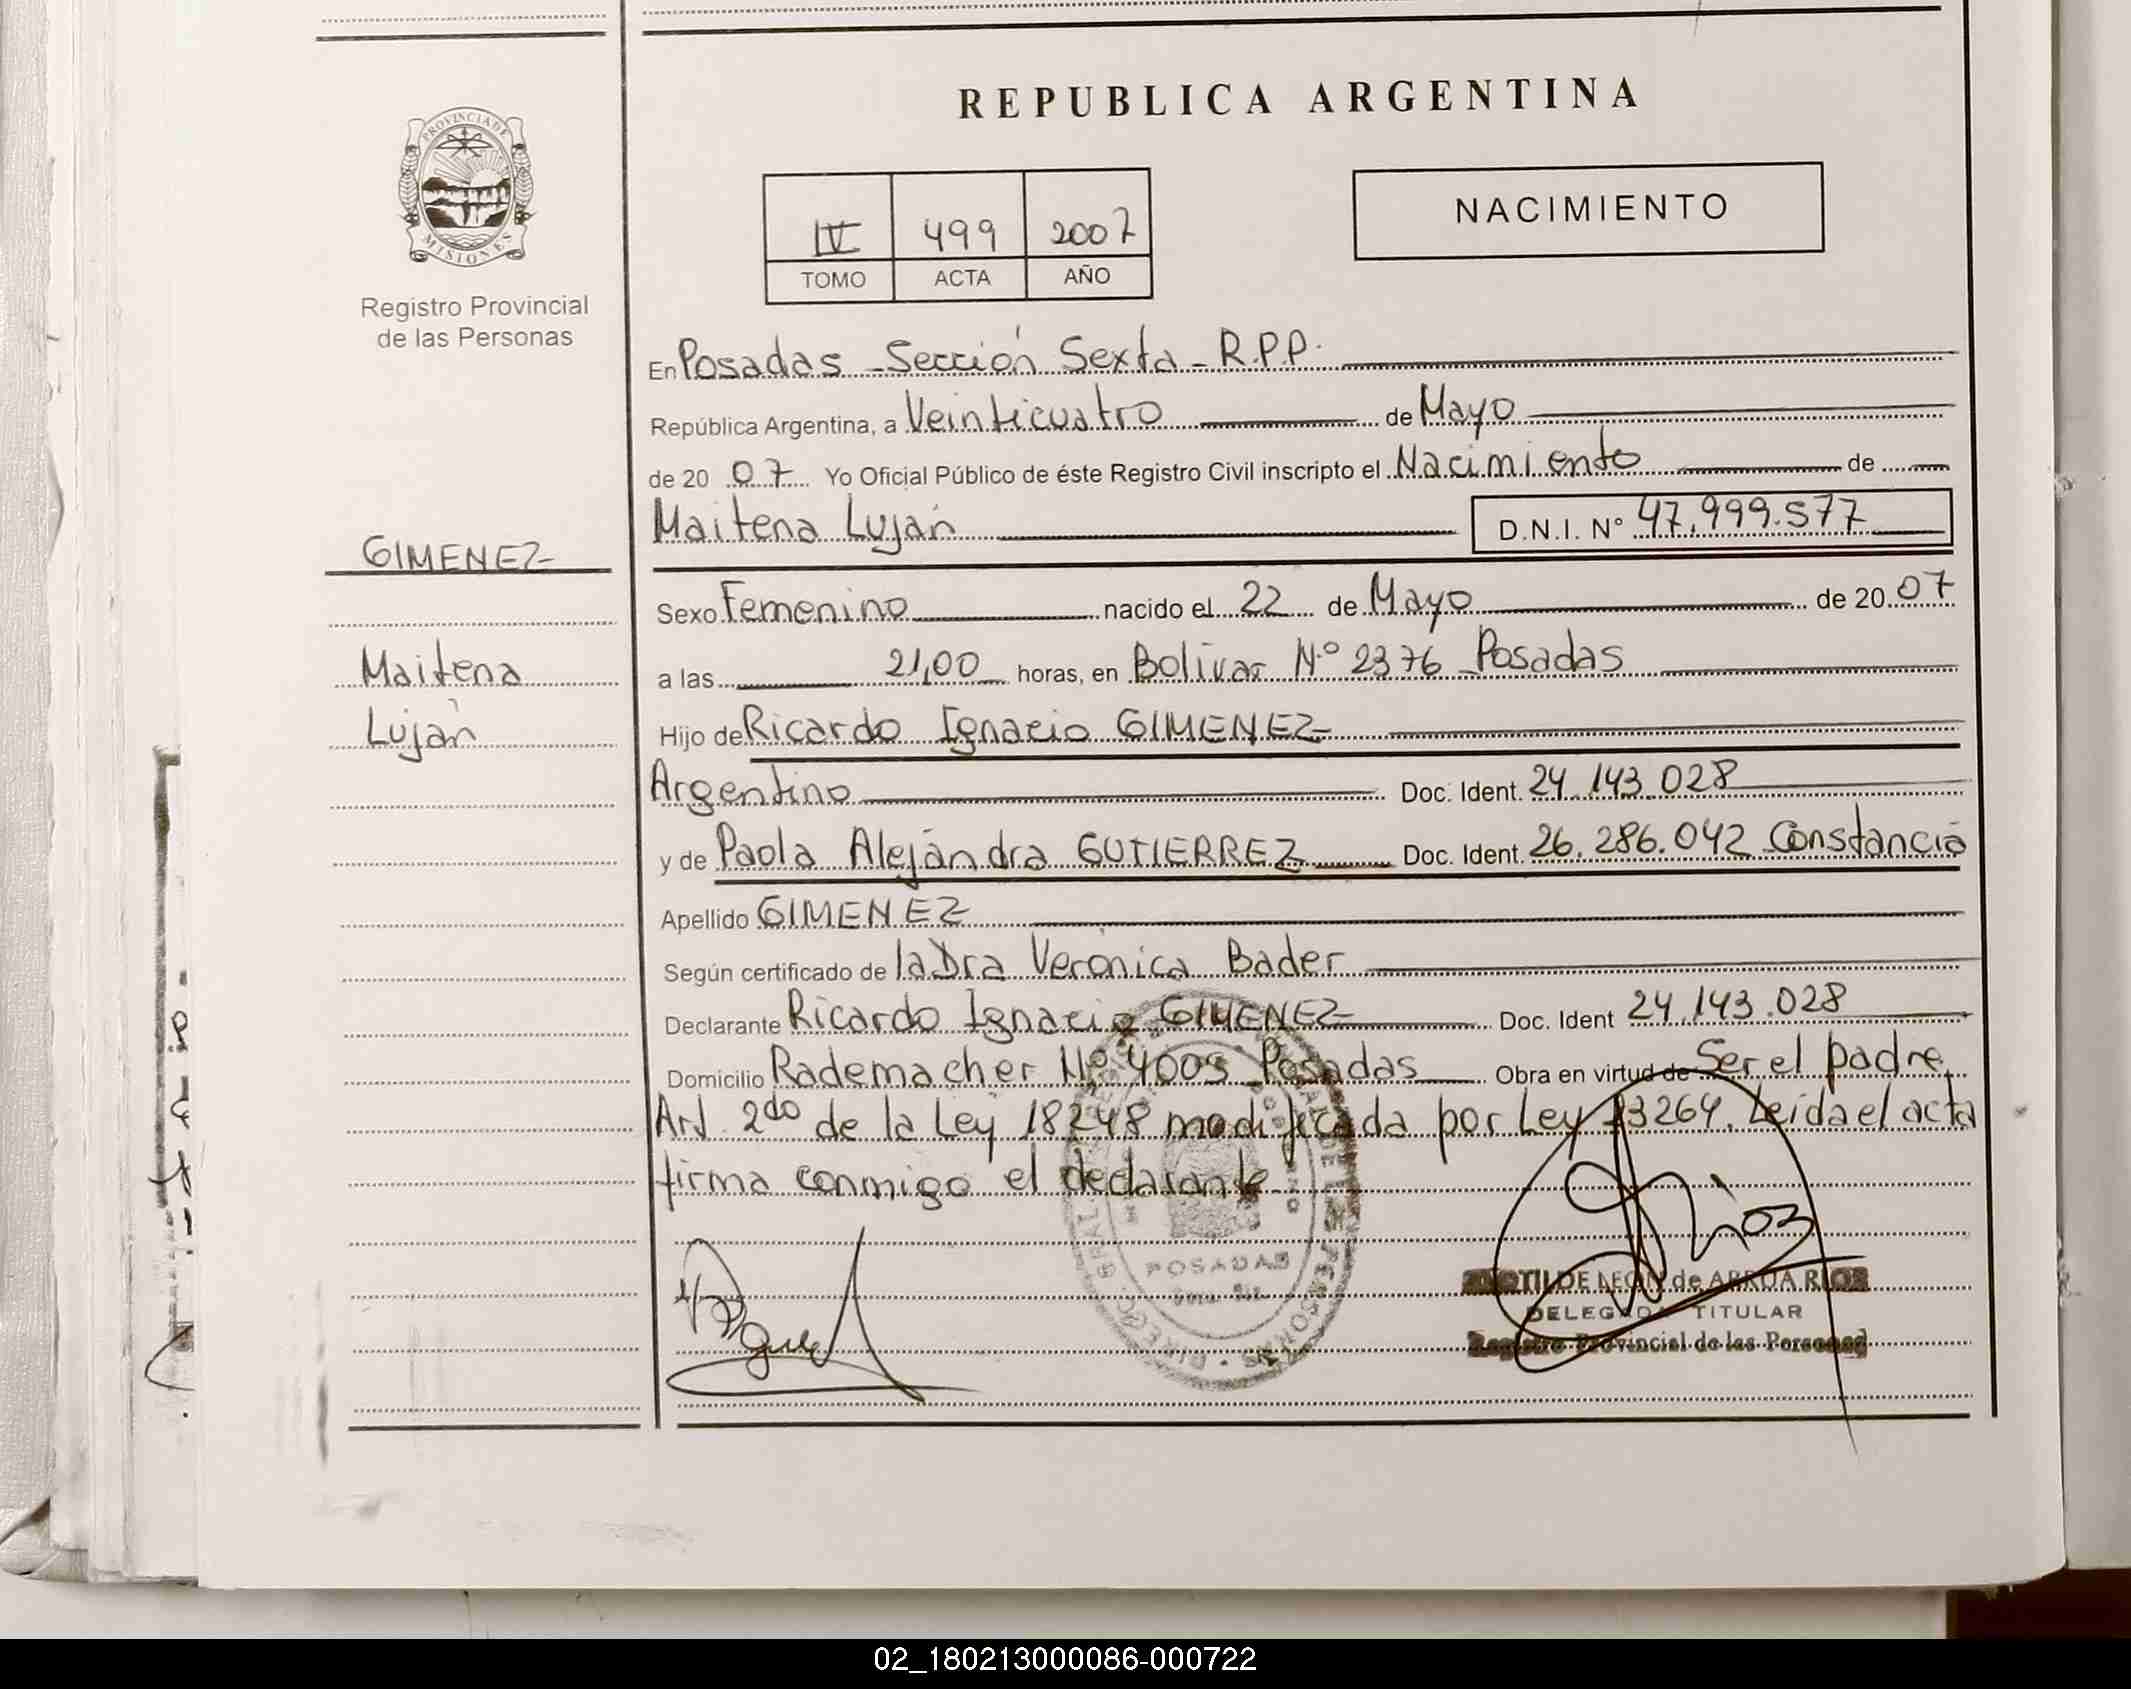 REPUBLICA ARGENTINA
PROVINCIA DE MISIONES
Registro Provincial
de las Personas
IV 499 2007
TOMO ACTA AÑO
NACIMIENTO
En Posadas - Sección Sexta - R.P.P.
República Argentina, a Veinticuatro de Mayo
de 20 07 Yo Oficial Público de éste Registro Civil inscripto el Nacimiento de
Maitena Luján D.N.I. N° 47.999.577
GIMENEZ
Maitena
Luján
Sexo Femenino nacido el 22 de Mayo de 20 07
a las 21,00 horas, en Bolivar N° 2376 Posadas
Hijo de Ricardo Ignacio GIMENEZ
Argentino Doc. Ident. 24.143.028
y de Paola Alejandra GUTIERREZ Doc. Ident. 26.286.042 Constancia
Apellido GIMENEZ
Según certificado de la Dra Verónica Bader
Declarante Ricardo Ignacio GIMENEZ Doc. Ident 24.143.028
Domicilio Rademacher N° 4005 Posadas Obra en virtud de Ser el padre
Art 2do de la Ley 18248 modificada por Ley 23264. Leida el acta
firma conmigo el declarante.
POSADAS
DE LEON de ARRUA RIOS
DELEGADA TITULAR
Registro Provincial de las Personas
02_180213000086-000722